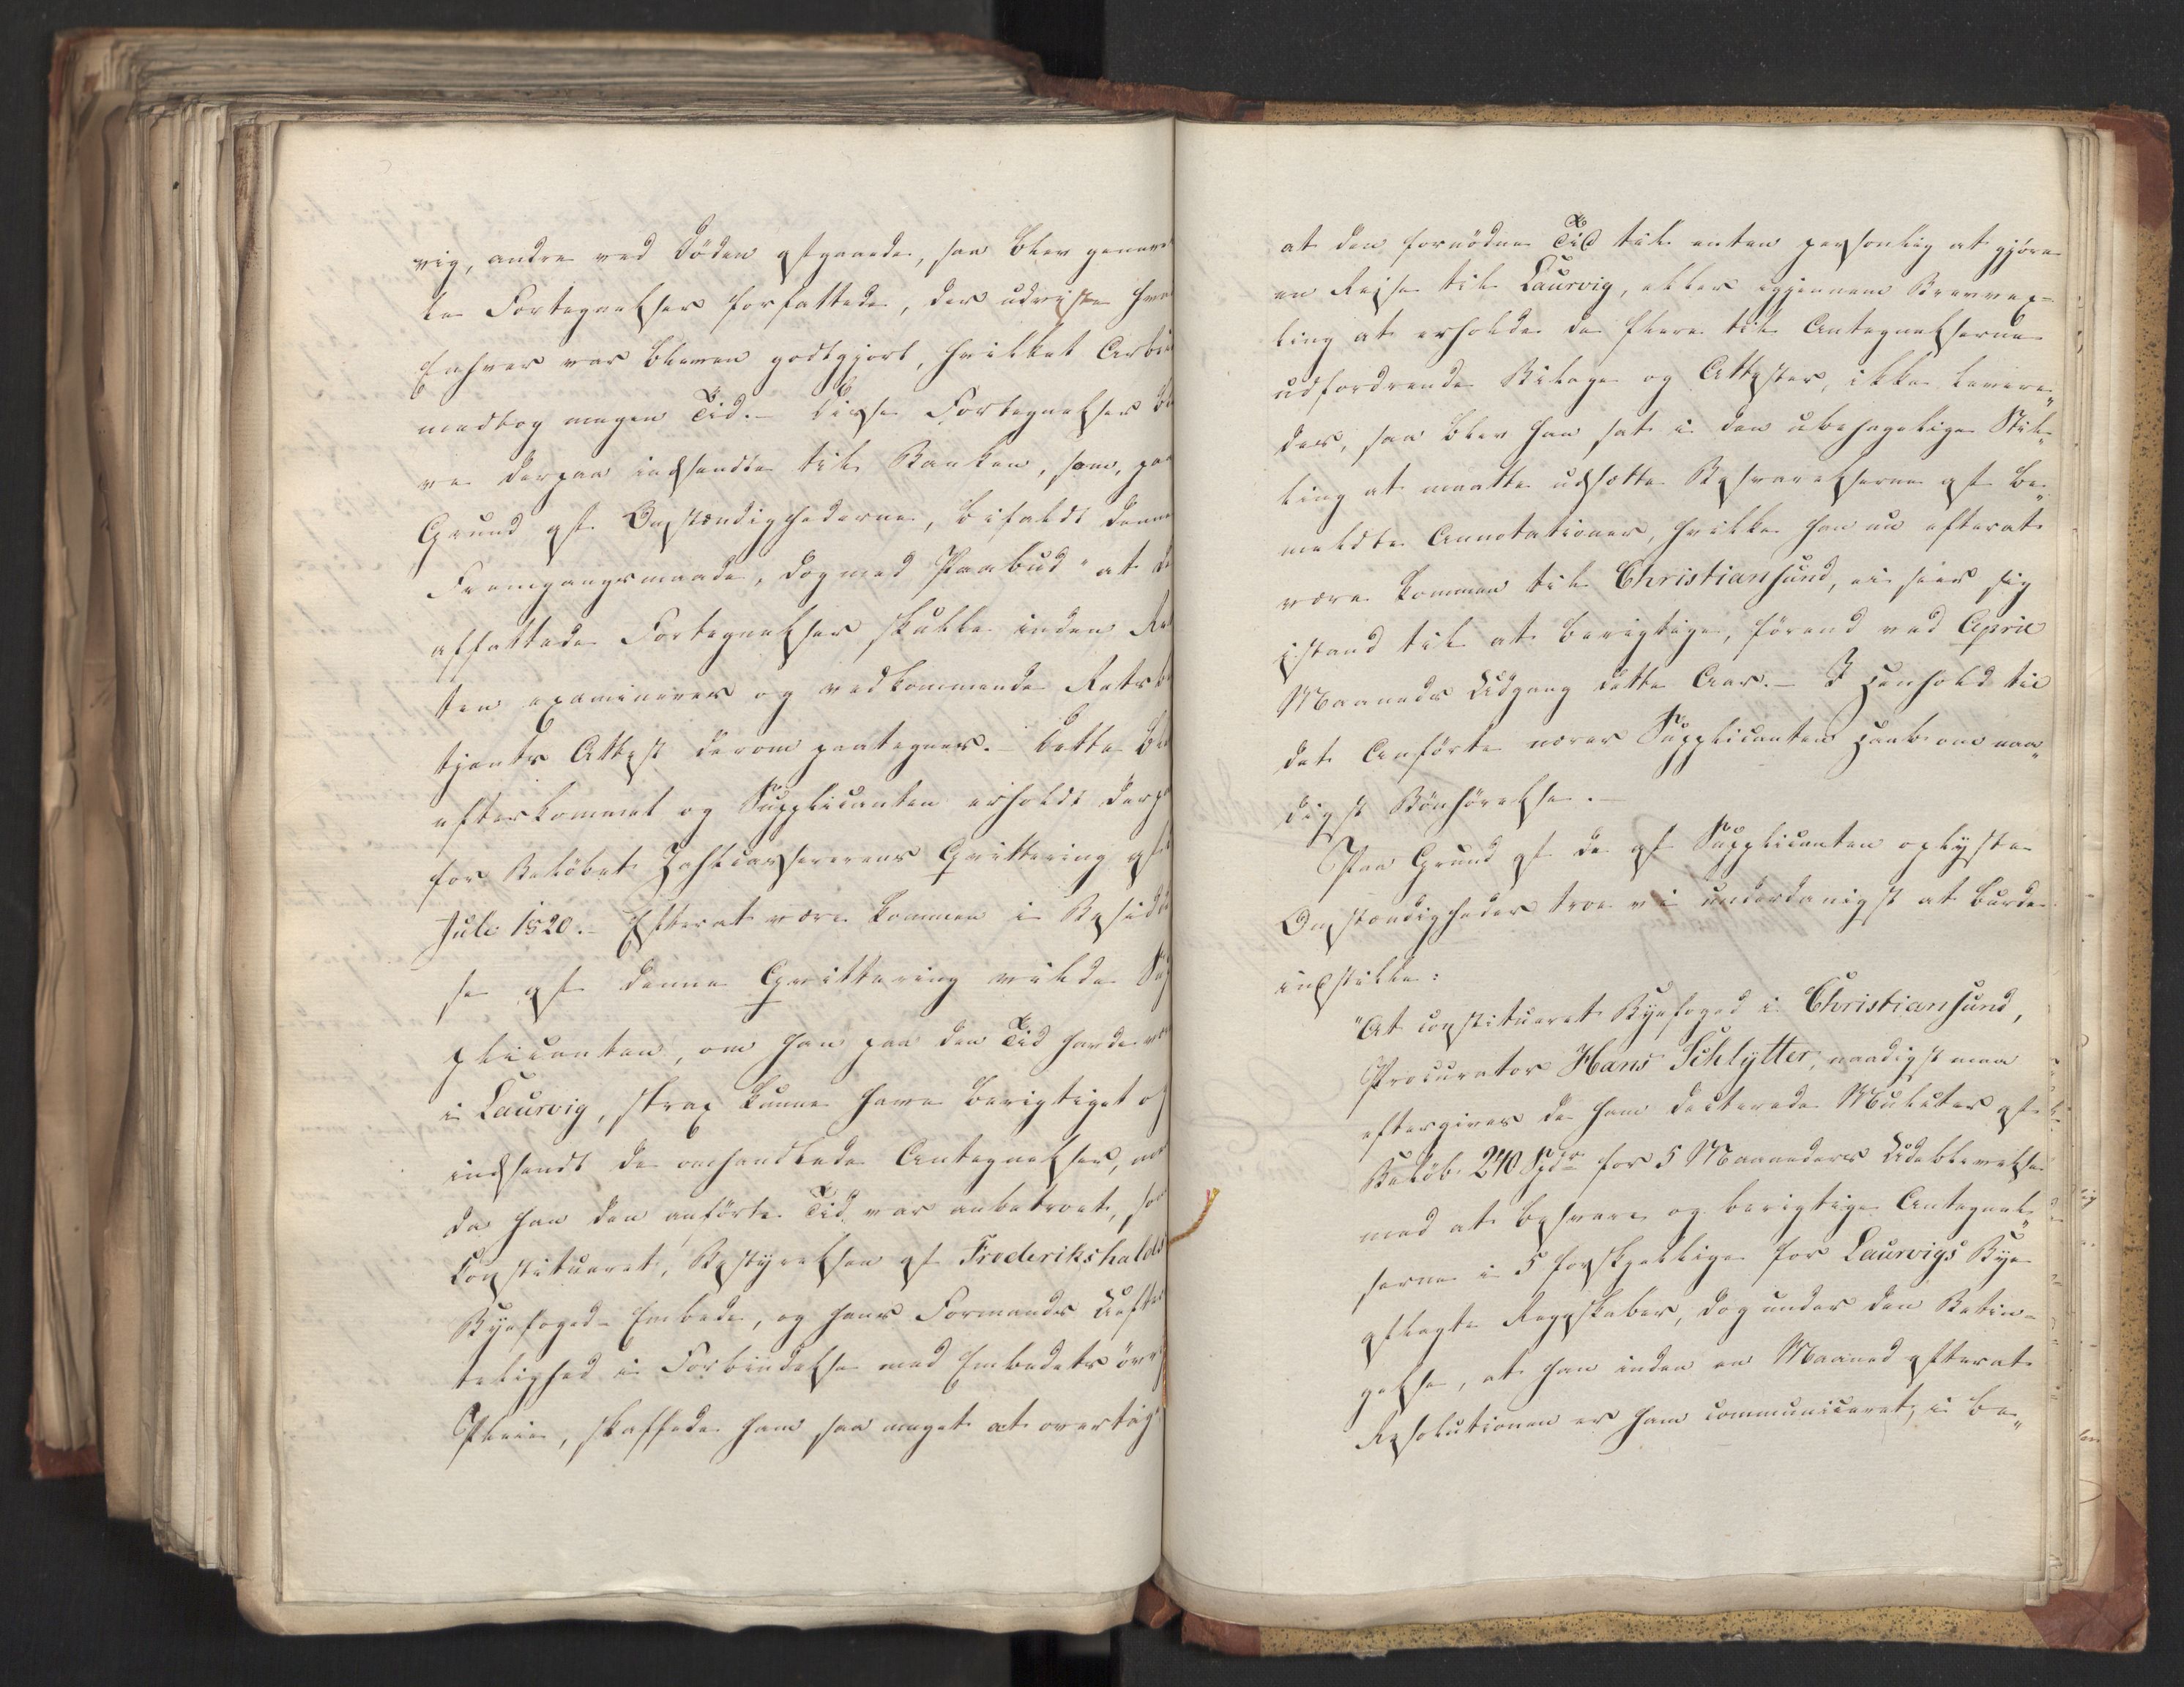 vig, andre ved Döden afgaaede, saa blev genera
le Fortegnelser forfattede, der udviste hva
Enhver var bleven godtgjort, hvilket Arbei
medtog megen Tid. – Disse Fortegnelser ble
ve derpaa indsendte til Banken, som, paa
Grund af Omstændighederne, bifaldt denne
Fremgangsmaade, dog med Paabud "at de
affattede Fortegnelser skulle inden Ret
ten examineres og vedkommende Retsbe
tjents Attest derom paategnes. – Dette blev
efterkommet og Supplicanten erholdt derpaa
for Belöbet Zahlcasserernes Qvittering af
Juli 1820. – Efterat være kommen i Besiddel
se af denne Qvittering vilde Sup
plicanten, om han paa den Tid havde væ
i Laurvig, strax kunne have berigtiget og
indsendt de omhandlede Antegnelser, men
da han den anförte Tid var anbetroet, som
Constitueret, Bestyrelsen af Frederikshalds
Byefoged-Embede, og hans Formands Uefter
telighed i Forbindelse med Embedets övr
Pleie, skaffede ham saa meget at overtage
at den fornödne Tid til enten personlig at gjöre
en Reise til Laurvig, eller igjennem Brevvex-
ling at erholde de flere til Antegnelserne
udfordrende Bilage og Attester, ikke levere„
des, saa blev han sat i den ubehagelige Stil„
ling at maatte udsætte Besvarelserne af be„
meldte Annotationer, hvilke han nu efterat
være kommen til Christiansund, ei seer sig
istand til at berigtige, förend ved April
Maaneds Udgang dette Aar. – I Henhold til
det Anförte nærer Supplicanten Haab om naa„
digst Bönhörelse. –
Paa Grund af de af Supplicanten oplyste
Omstændigheder troe vi underdanigst at burde
indstille:
"At constitueret Byefoged i Christiansund,
Procurator Hans Schlytter, naadigst maa
eftergives de ham dicterede Mulcter af
Belöb 240 Spdr for 5 Maaneders Udeblivelse
med at besvare og berigtige Antegnel„
serne i 5 forskjellige for Laurvigs Bye
aflagte Regnskaber, dog under den Betin-
gelse, at han inden en Maaned efterat
Resolutionen er ham communiceret, i be„